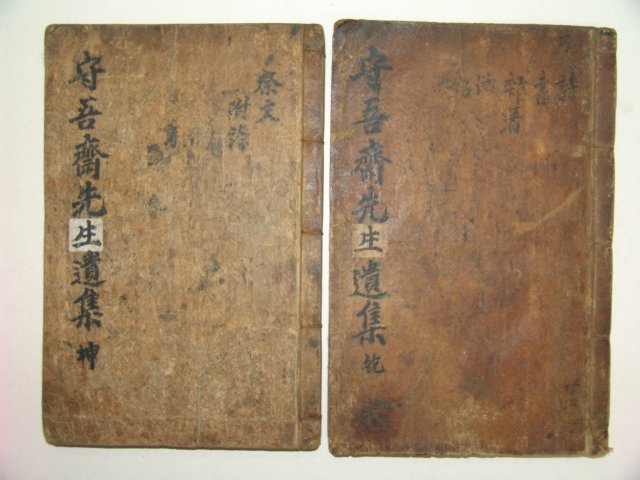 守吾齋先生遺集 乾
詩
雜著
守吾齋先生遺集 坤
祭文
附錄